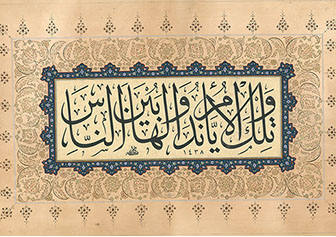 وتلك الأيام نداولها بين الناس
١٤٣٨